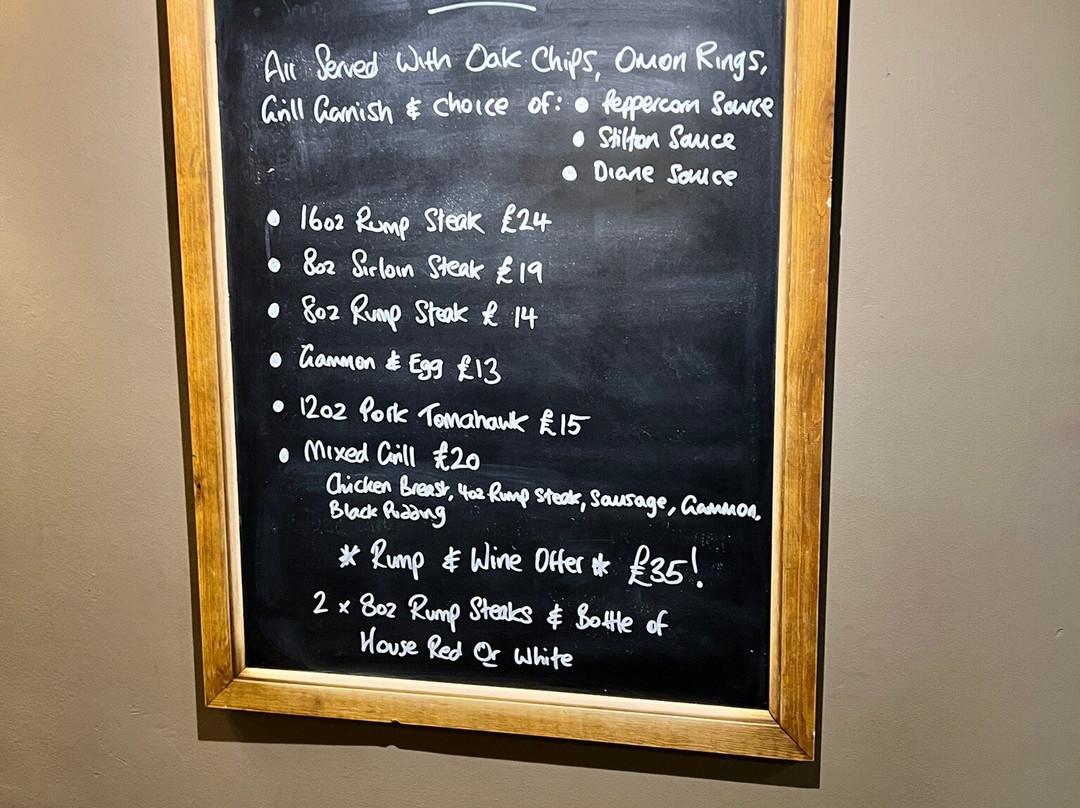 All Served With Oak Chips, Onion Rings,
Grill Garnish & choice of: • Peppercorn Sauce
• Stilton Sauce
• Diane Sauce
• 16oz Rump Steak £24
• 8oz Sirloin Steak £19
• 8oz Rump Steak £14
• Gammon & Egg £13
• 12oz Pork Tomahawk £15
• Mixed Grill £20
Chicken Breast, 4oz Rump Steak, Sausage, Gammon,
Black Pudding
* Rump & Wine Offer * £35!
2 x 8oz Rump Steaks & Bottle of
House Red Or White